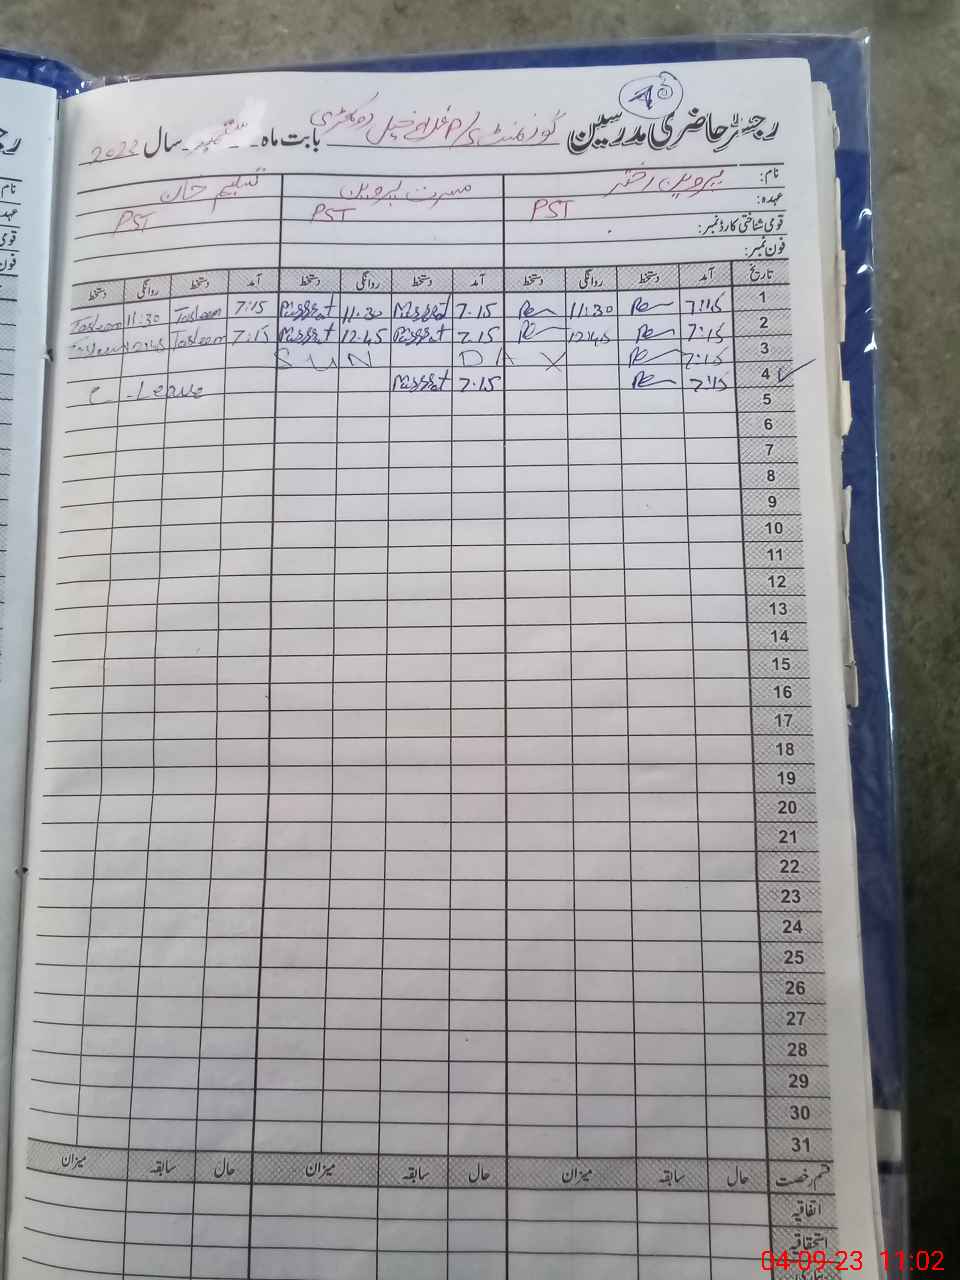 رجسٹر حاضری مدرسین گورنمنٹ بابت ماہ ستمبر سال 2023
نام: پروین اختر مسرت پروین تسلیم خان
عہدہ: PST PST PST
قومی شناختی کارڈ نمبر:
فون نمبر:
تاریخ آمد دستخط روانگی دستخط آمد دستخط روانگی دستخط آمد دستخط روانگی دستخط
1 7:15 11:30 7.15 Missrat 11.30 Missrat 7:15 Tasleem 11:30 Tasleem
2 7:15 12:45 7.15 Missrat 12.45 Missrat 7:15 Tasleem 12:45 Tasleem
3 7:15 SUN DAY
4 7:15 7.15 Missrat Leave
5
6
7
8
9
10
11
12
13
14
15
16
17
18
19
20
21
22
23
24
25
26
27
28
29
30
31
قسم رخصت حال سابقہ میزان حال سابقہ میزان حال سابقہ میزان
اتفاقیہ
استحقاقیہ
04-09-23 11:02